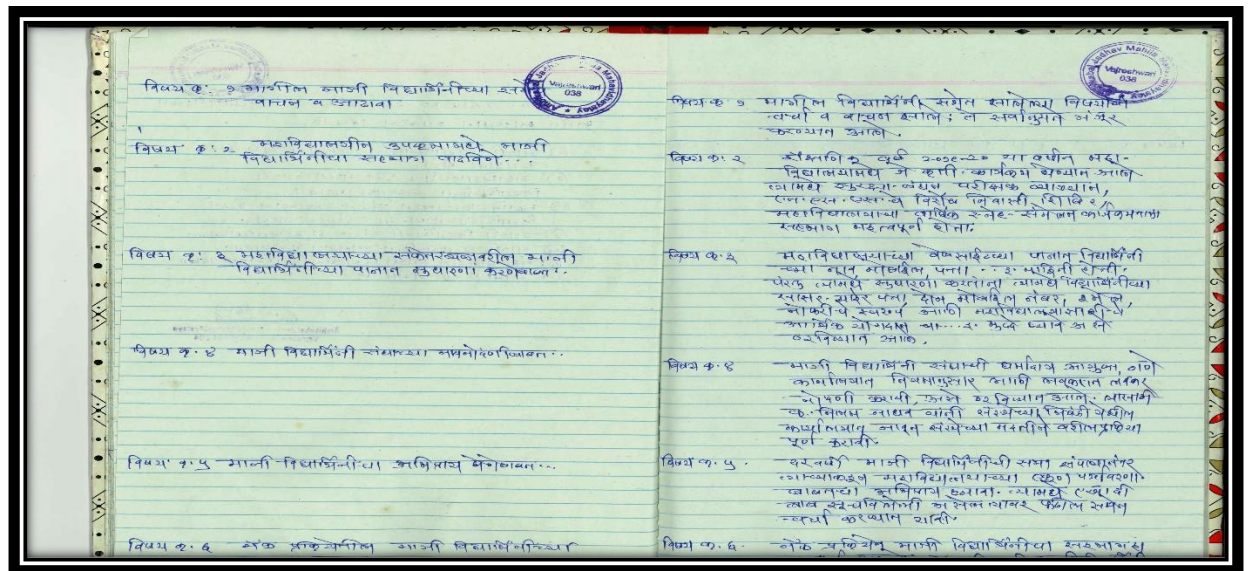 विषय क्र. १ मागील माजी विद्यार्थिनींच्या
वाचन व आढावा
विषय क्र. २ महाविद्यालयीन उपक्रमामध्ये माजी
विद्यार्थिनींचा सहभाग वाढविणे...
विषय क्र. ३ महाविद्यालयाच्या संकेतस्थळावरील माजी
विद्यार्थिनींच्या पानात सुधारणा करणेबाबत..
विषय क्र. ४ माजी विद्यार्थिनी संघाच्या नावनोंदणीबाबत..
विषय क्र. ५ माजी विद्यार्थिनींचा अभिप्राय घेणेबाबत...
विषय क्र. ६ नॅक प्रक्रियेतील माजी विद्यार्थिनींच्या
Vajreshwari
038
Jadhav Mahila
Vajreshwari
038
विषय क्र. १ मागील विद्यार्थिनी सभेत झालेल्या विषयांची
चर्चा व वाचन झाले; ते सर्वानुमते मंजूर
करण्यात आले.
विषय क्र. २ शैक्षणिक वर्ष २०१९-२० या वर्षात महा-
विद्यालयामध्ये जे काही कार्यक्रम घेण्यात आले
त्यामध्ये रक्षा-बंधन परीक्षक व्याख्यान,
एन. एस. एस. चे विशेष निवासी शिबिर,
महाविद्यालयाचा वार्षिक स्नेह-संमेलन कार्यक्रमाला
सहभाग महत्वपूर्ण होता.
विषय क्र. ३ महाविद्यालयाच्या वेबसाईटच्या पानात विद्यार्थिनीं
च्या नाव, मोबाईल, पत्ता ... इ. माहिती होती.
परंतु त्यामध्ये सुधारणा करताना त्यामध्ये विद्यार्थिनींच्या
सासर-माहेर पत्ता, दोन मोबाईल नंबर, ईमेल,
नोकरीचे स्वरूप आणि महाविद्यालयासाठीचे
आर्थिक योगदान चा.... इ. मुद्दे घ्यावे असे
ठरविण्यात आले.
विषय क्र. ४ माजी विद्यार्थिनी संघाची धर्मादाय आयुक्त, ठाणे
कार्यालयात नियमानुसार माजी लवकरात लवकर
नोंदणी करावी, असे ठरविण्यात आले.
कु. निलम जाधव यांनी संस्थेच्या भिवंडी येथील
कार्यालयात जाऊन संस्थेच्या मदतीने वरील प्रक्रिया
पूर्ण करावी.
विषय क्र. ५. दरवर्षी माजी विद्यार्थिनींची सभा संपल्यानंतर
त्यांच्याकडून महाविद्यालयाच्या एकूण
बाबतचा अभिप्राय घ्यावा. त्यामध्ये एखादी
बाब सूचविलेली असेल त्यावर
चर्चा करण्यात यावी.
विषय क्र. ६. नॅक प्रक्रियेत माजी विद्यार्थिनींचा सहभाग